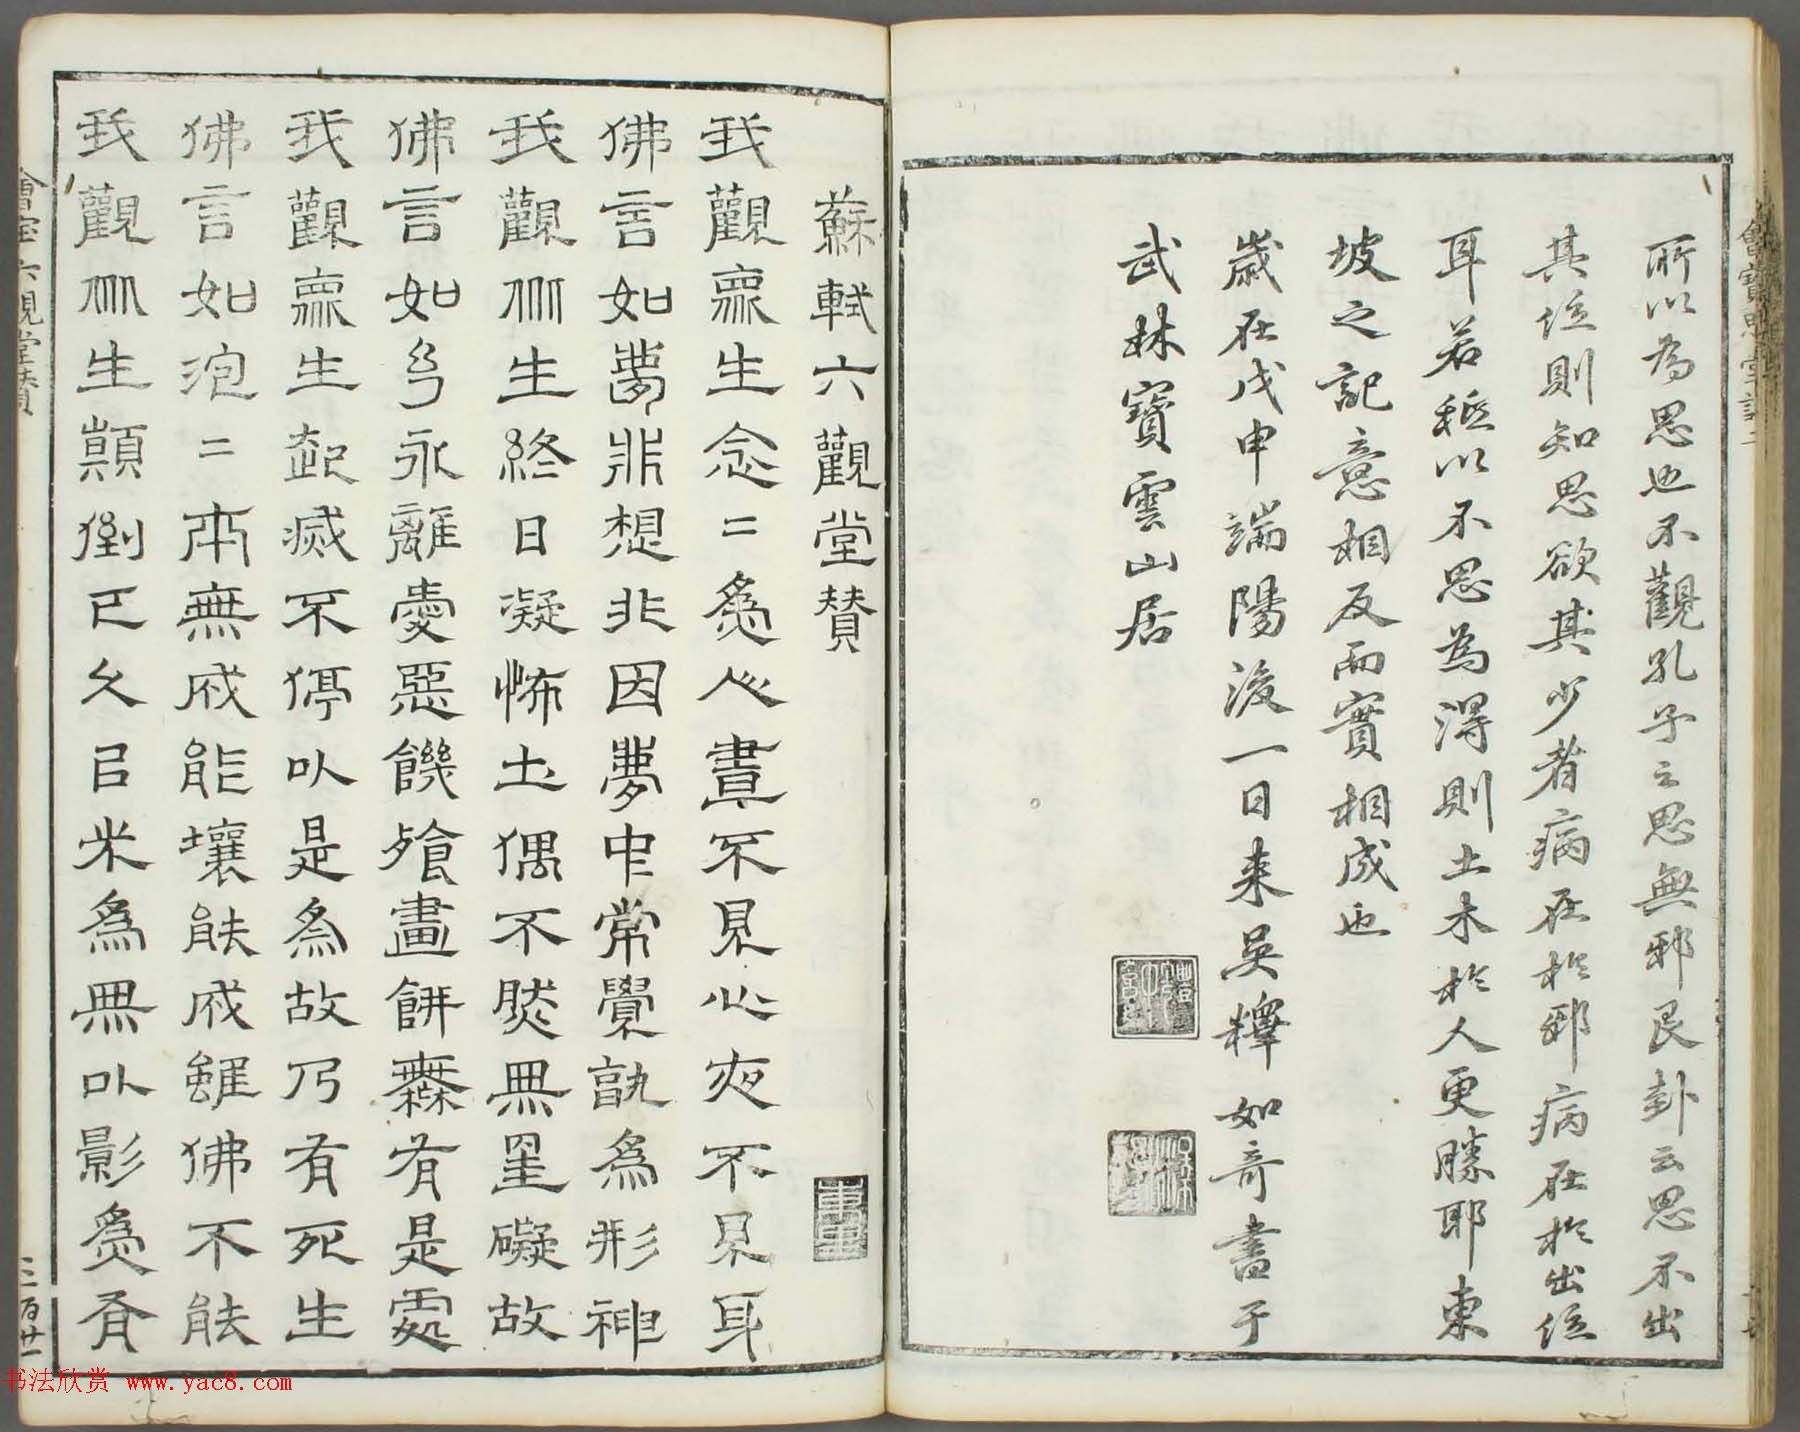 所以為思也不觀孔子之思無邪艮卦云思不出
其位則知思欲其少者病在於邪病在於出位
耳若秪以不思為得則土木於人更勝耶東
坡之記意相反而實相成也
歲在戊申端陽後一日来吳釋如奇書于
武林寶雲山居
蘇軾六觀堂贊
我觀眾生念二為心晝不見心夜不見耳
佛言如夢非想非因夢中常覺孰為形神
我觀眾生終日凝怖土偶不然無罣礙故
佛言如幻永離憂惡饑飱畫餅無有是處
我觀眾生起滅不停以是為故乃有死生
佛言如泡二本無成能壞能成雖佛不能
我觀眾生顛倒已久以光為無以影為有
六觀堂贊
三百廿一
书法欣赏 www.yac8.com